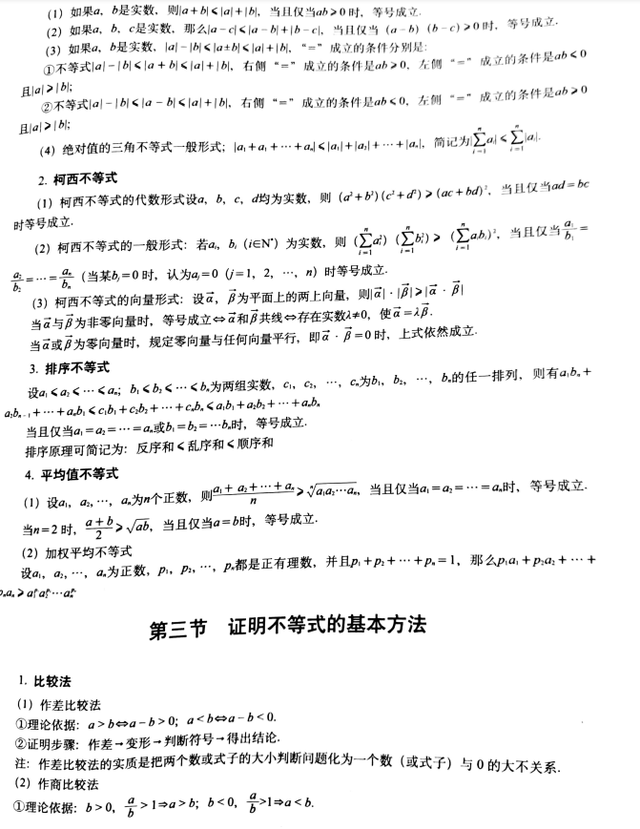 (1) 如果a，b是实数，则|a+b|≤|a|+|b|，当且仅当ab≥0时，等号成立.
(2) 如果a，b，c是实数，那么|a-c|≤|a-b|+|b-c|，当且仅当 (a-b) (b-c)≥0时，等号成立.
(3) 如果a，b是实数，|a|-|b|≤|a±b|≤|a|+|b|，“=”成立的条件分别是:
①不等式|a|-|b|≤|a+b|≤|a|+|b|，右侧“=”成立的条件是ab≥0，左侧“=”成立的条件是ab≤0
且|a|≥|b|;
②不等式|a|-|b|≤|a-b|≤|a|+|b|，右侧“=”成立的条件是ab≤0，左侧“=”成立的条件是ab≥0
且|a|≥|b|;
(4) 绝对值的三角不等式一般形式：|a₁+a₁+⋯+aₙ|≤|a₁|+|a₂|+⋯+|aₙ|，简记为|∑ⁿᵢ₌₁aᵢ|≤∑ⁿᵢ₌₁|aᵢ|.
2. 柯西不等式
(1) 柯西不等式的代数形式设a，b，c，d均为实数，则 (a²+b²)(c²+d²)≥(ac+bd)²，当且仅当ad=bc
时等号成立.
(2) 柯西不等式的一般形式：若aᵢ，bᵢ (i∈N*) 为实数，则 (∑ⁿᵢ₌₁aᵢ²) (∑ⁿᵢ₌₁bᵢ²)≥ (∑ⁿᵢ₌₁aᵢbᵢ)²，当且仅当a₁/b₁=
a₂/b₂=⋯=aₙ/bₙ (当某bⱼ=0时，认为aⱼ=0 (j=1，2，⋯，n) 时等号成立.
(3) 柯西不等式的向量形式：设α⃗，β⃗为平面上的两上向量，则|α⃗|·|β⃗|≥|α⃗·β⃗|
当α⃗与β⃗为非零向量时，等号成立⇔α⃗和β⃗共线⇔存在实数λ≠0，使α⃗=λβ⃗.
当α⃗或β⃗为零向量时，规定零向量与任何向量平行，即α⃗·β⃗=0时，上式依然成立.
3. 排序不等式
设a₁≤a₂≤⋯≤aₙ；b₁≤b₂≤⋯≤bₙ为两组实数，c₁，c₂，⋯，cₙ为b₁，b₂，⋯，bₙ的任一排列，则有a₁bₙ+
a₂bₙ₋₁+⋯+aₙb₁≤c₁b₁+c₂b₂+⋯+cₙbₙ≤a₁b₁+a₂b₂+⋯+aₙbₙ
当且仅当a₁=a₂=⋯=aₙ或b₁=b₂=⋯bₙ时，等号成立.
排序原理可简记为：反序和≤乱序和≤顺序和
4. 平均值不等式
(1) 设a₁，a₂，⋯，aₙ为n个正数，则(a₁+a₂+⋯+aₙ)/n≥ⁿ√(a₁a₂⋯aₙ)，当且仅当a₁=a₂=⋯=aₙ时，等号成立.
当n=2时，(a+b)/2≥√(ab)，当且仅当a=b时，等号成立.
(2) 加权平均不等式
设a₁，a₂，⋯，aₙ为正数，p₁，p₂，⋯，pₙ都是正有理数，并且p₁+p₂+⋯+pₙ=1，那么p₁a₁+p₂a₂+⋯+
pₙaₙ≥a₁ᵖ¹a₂ᵖ²⋯aₙᵖⁿ.
第三节 证明不等式的基本方法
1. 比较法
(1) 作差比较法
①理论依据：a>b⇔a-b>0；a<b⇔a-b<0.
②证明步骤：作差→变形→判断符号→得出结论.
注：作差比较法的实质是把两个数或式子的大小判断问题化为一个数（或式子）与0的大不关系.
(2) 作商比较法
①理论依据：b>0，a/b>1⇒a>b；b<0，a/b>1⇒a<b.